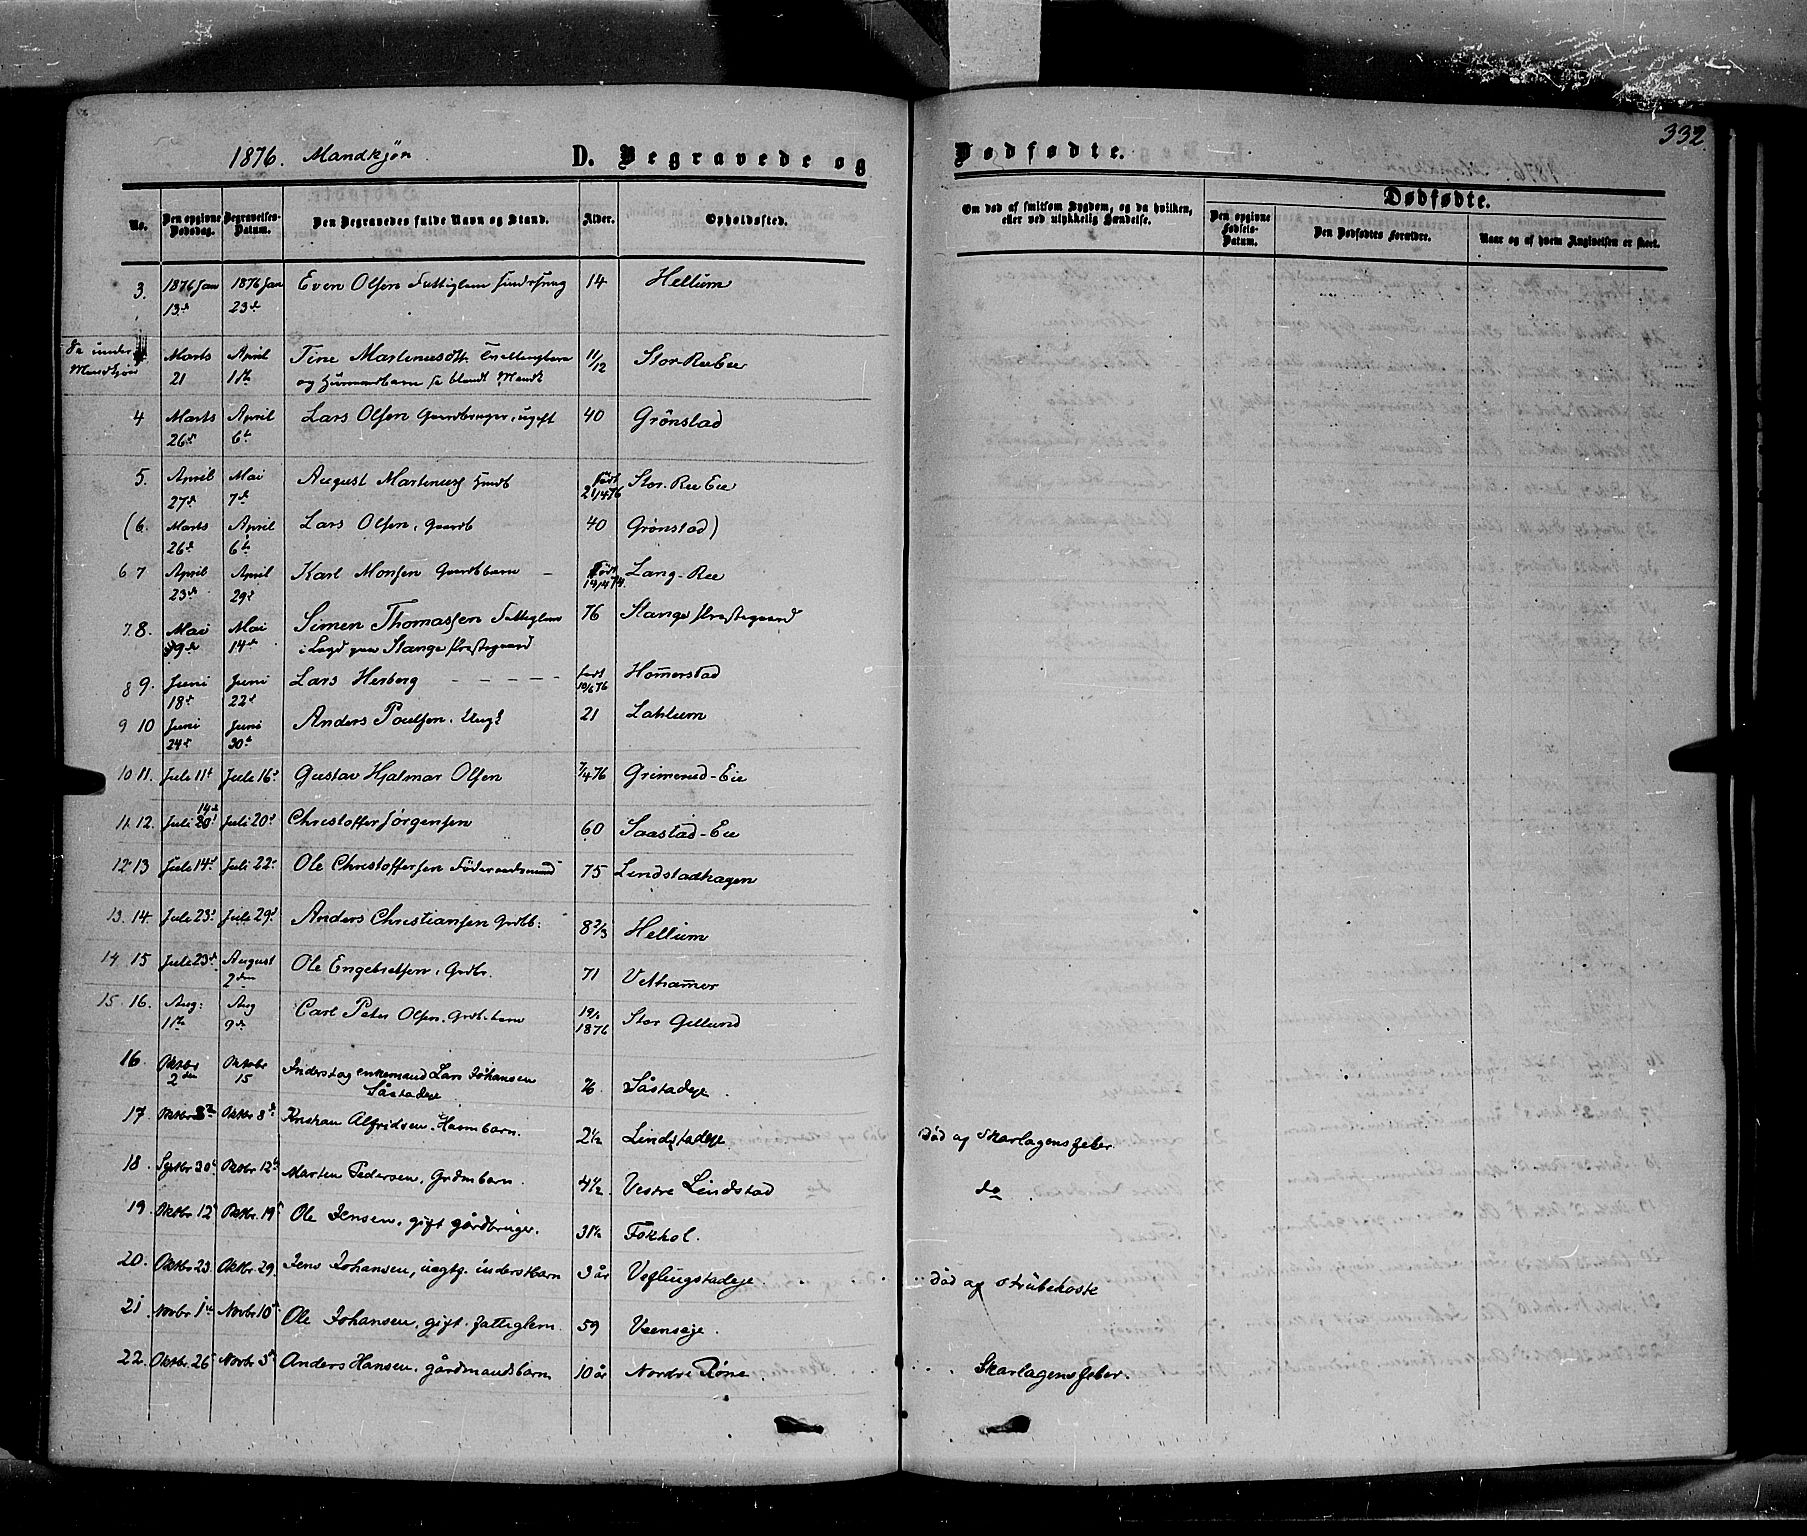 332
1876. Mandkjøn. D. Begravede og Dødfødte.
No. Den opgivne Dødsdag. Begravelses-Datum. Den Begravedes fulde Navn og Stand. Alder. Opholdssted. Om død af smitsom Sygdom, og da hvilken, eller ved ulykkelig Hændelse. Dødfødte.
Den opgivne Fødsels-Datum. Den Dødfødtes Forældre. Naar og af hvem Angivelsen er skeet.
3. 1876 Jan 13de 1876 Jan 23de Even Olsen Fattiglem 14 Hellum
Se under Mandkjøn Marts 21 April 11te Tine Martinusdtt.
og 11/12 Stor-Ree Eie
4 Marts 26de April 6te Lars Olsen Gaardbruger, ugift 40 Grønstad
5. April 27de Mai 7de August Martinus Født 21/4 76 Stor-Ree Eie
(6. Marts 26de April 6te Lars Olsen, Gaardb 40 Grønstad)
6 7 April 23de April 29de Karl Monsen Gaardbbarn Født Lang-Ree
7. 8. Mai Mai 14de Simen Thomassen Fattiglem
i Lægd paa Stange Præstegaard 76 Stange Præstegaard
8 9. Juni 18de Juni 22de Lars Herberg født 10/6 76 Homerstad
9 10 Juni 24de Juni 30te Anders Poulsen, Ungk 21 Lahlum
10 11. Juli 11te Juli 16de Gustav Hjalmar Olsen 7/4 76 Grimerud-Eie
11. 12. Juli 14de Juli 20de Christoffer Jørgensen 60 Saastad-Eie
12 13 Juli 14de Juli 22de Ole Christoffersen Føderaadsmand 75 Lindstadhagen
13. 14. Juli 23de Juli 29de Anders Christiansen Grdb: 8 2/3 Hellum
14 15 Juli 23de August 2den Ole Engebretsen, Grdbr. 71 Vethamer
15. 16. Aug: 11te Aug 9de Carl Peter Olsen, Grdb.barn 1876 Stor Gillund
16. Oktbr 2den Oktobr 15 Inderst og enkemand Lars Johansen
Såstadeje Såstadeje.
17. Oktbr Oktbr 8de Kristian Alfridsen, Husmbarn. 2 1/2 Lindstadeje Død af Skarlagensfeber
18. Septbr 30te Oktbr 12te Marten Pedersen, Grdmbarn. 4 1/2 Vestre Lindstad do
19. Oktbr 12te Oktbr. 19de Ole Jensen, gift gårdbruger. 31 1/2 Fokhol.
20. Oktbr 23. Oktbr. 29. Jens Johansen, uægtg. inderstbarn 3 år Veflingstadeje Død af strubehoste
21 Novbr 1ste Novbr 10de Ole Johansen, gift, fattiglem. 59 Veenseje.
22. Oktbr. 26 Novbr 5te Anders Hansen, gårdmandsbarn 10 år Nordre Røne. Skarlagensfeber.